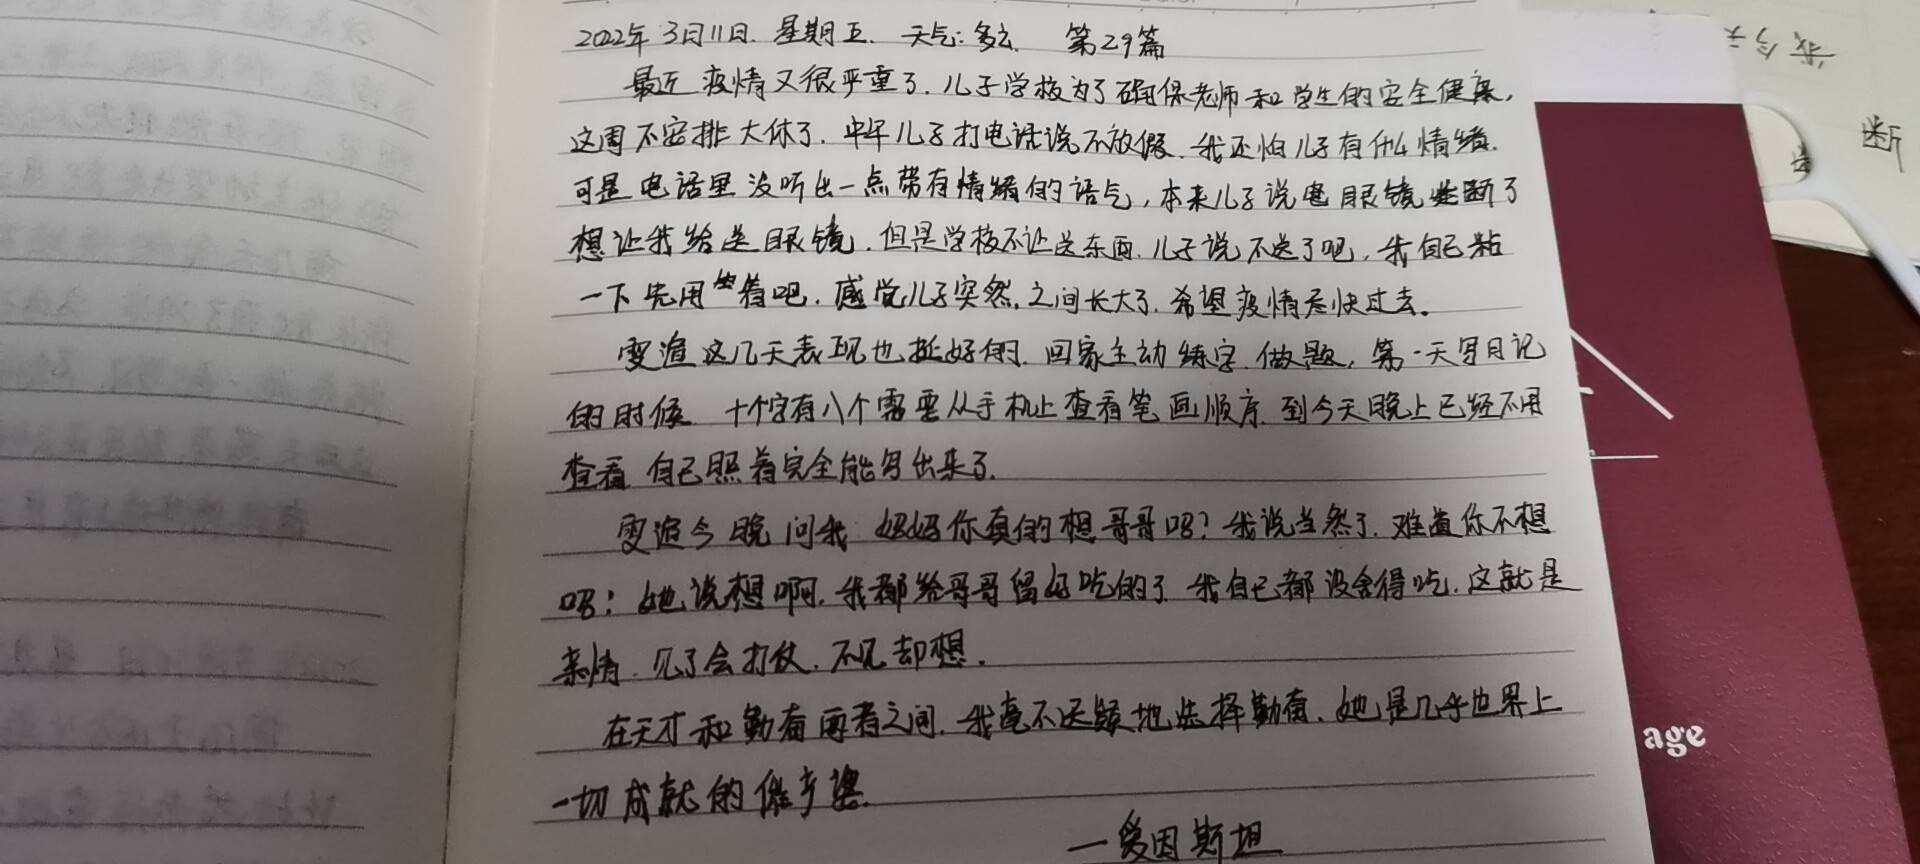 2022年3月11日.星期五. 天气:多云. 第29篇
最近疫情又很严重了.儿子学校为了确保老师和学生的安全健康,
这周不安排大休了.中午儿子打电话说不放假.我还怕儿子有什么情绪.
可是电话里没听出一点带有情绪的语气,本来儿子说 眼镜 断了
想让我给送眼镜.但是学校不让送东西.儿子说不送了吧,我自己粘
一下先用着吧.感觉儿子突然.之间长大了.希望疫情尽快过去。
雯 这几天表现也挺好的.回家主动练字.做题,第一天写日记
的时候 十个字有八个需要从手机上查看笔画顺序.到今天晚上已经不用
查看 自己照着完全能写出来了.
雯 今晚问我 妈妈你真的想哥哥吗?我说当然了.难道你不想
吗!她说想啊.我都给哥哥留好吃的了 我自己都没舍得吃.这就是
亲情.见了会打仗.不见却想.
在天才和勤奋两者之间.我毫不迟疑地选择勤奋.她是几乎世界上
一切成就的催产婆.
—爱因斯坦
我今天
断
age